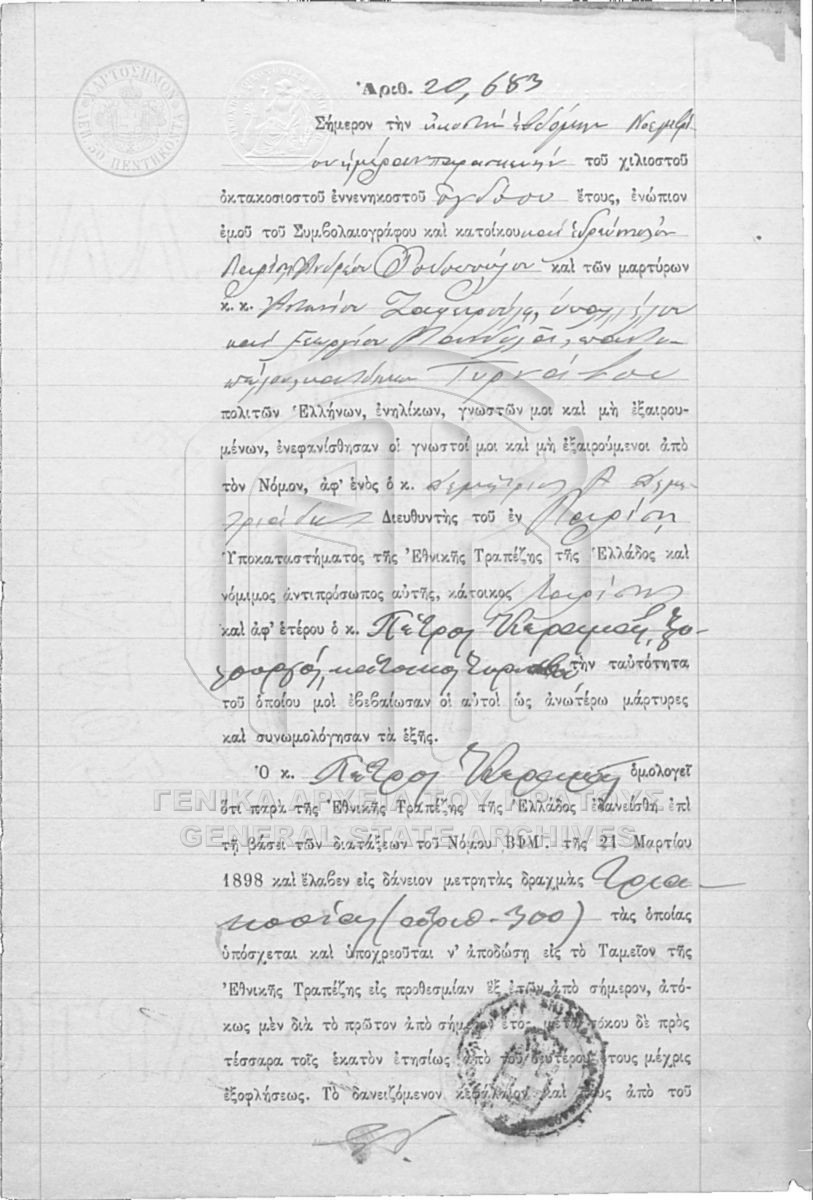 ΧΑΡΤΟΣΗΜΟΝ
ΛΕΠ. 50 ΠΕΝΤΗΚΟΝΤΑ
Ἀριθ. 20,683
Σήμερον τὴν εἰκοστὴν ἑβδόμην Νοεμβρί
ου ἡμέραν παρασκευὴν τοῦ χιλιοστοῦ
ὀκτακοσιοστοῦ ἐννενηκοστοῦ ὀγδόου ἔτους, ἐνώπιον
ἐμοῦ τοῦ Συμβολαιογράφου καὶ κατοίκου καὶ ἑδρεύοντος
Λαρίσης Ἀνδρέου Ῥοδοπούλου καὶ τῶν μαρτύρων
κ. κ. Ἀντωνίου ὑπαλλήλου
καὶ Γεωργίου παντο
πώλου, κατοίκων Τυρνάβου
πολιτῶν Ἑλλήνων, ἐνηλίκων, γνωστῶν μοι καὶ μὴ ἐξαιρου-
μένων, ἐνεφανίσθησαν οἱ γνωστοί μοι καὶ μὴ ἐξαιρούμενοι ἀπὸ
τὸν Νόμον, ἀφ' ἑνὸς ὁ κ. Δημήτριος Α Δημη
τριάδης Διευθυντὴς τοῦ ἐν Λαρίσῃ
Ὑποκαταστήματος τῆς Ἐθνικῆς Τραπέζης τῆς Ἑλλάδος καὶ
νόμιμος ἀντιπρόσωπος αὐτῆς, κάτοικος Λαρίσης
καὶ ἀφ' ἑτέρου ὁ κ. Πέτρος
κάτοικος Τυρνάβου τὴν ταὐτότητα
τοῦ ὁποίου μοὶ ἐβεβαίωσαν οἱ αὐτοὶ ὡς ἀνωτέρω μάρτυρες
καὶ συνωμολόγησαν τὰ ἑξῆς.
Ὁ κ. Πέτρος ὁμολογεῖ
ΓΕΝΙΚΑ ΑΡΧΕΙΑ ΤΟΥ ΚΡΑΤΟΥΣ
ὅτι παρὰ τῆς Ἐθνικῆς Τραπέζης τῆς Ἑλλάδος ἐδανείσθη ἐπὶ
GENERAL STATE ARCHIVES
τῇ βάσει τῶν διατάξεων τοῦ Νόμου ΒΦΜ΄. τῆς 21 Μαρτίου
1898 καὶ ἔλαβεν εἰς δάνειον μετρητὰς δραχμὰς τρια-
κοσίας (ἀριθ. 300) τὰς ὁποίας
ὑπόσχεται καὶ ὑποχρεοῦται ν' ἀποδώσῃ εἰς τὸ Ταμεῖον τῆς
Ἐθνικῆς Τραπέζης εἰς προθεσμίαν ἓξ ἐτῶν ἀπὸ σήμερον, ἀτό-
κως μὲν διὰ τὸ πρῶτον ἀπὸ σήμερον ἔτος, μετὰ τόκου δὲ πρὸς
τέσσαρα τοῖς ἑκατὸν ἐτησίως ἀπὸ τοῦ δευτέρου ἔτους μέχρις
ἐξοφλήσεως. Τὸ δανειζόμενον κεφάλαιον καὶ τοὺς ἀπὸ τοῦ